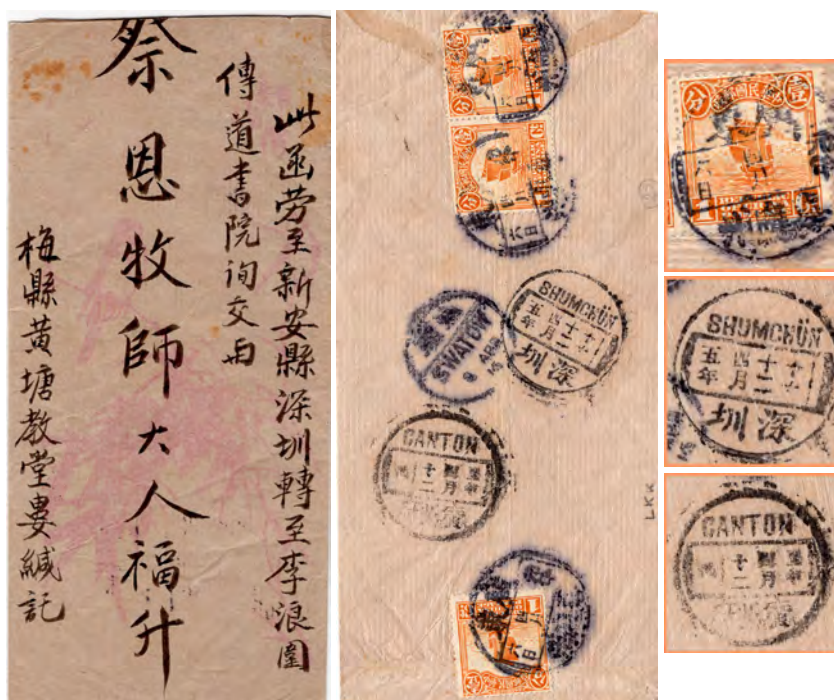 此函勞至新安縣深圳轉至李浪圍
傳道書院詢交
祭恩牧師大人福升
梅縣黃塘教堂婁緘記
SWATOW
SHUMCHÜN
五年
四月
十二
深圳
CANTON
五年
四月
十二
LKK
1
壹
分
1
SHUMCHÜN
五年
四月
十二
深圳
CANTON
五年
四月
十二